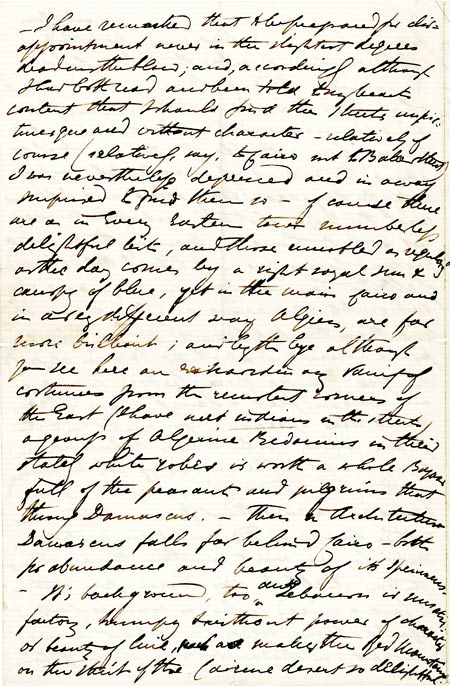 - I have remarked that to be prepared for dis=
appointment never in the slightest degree
deadens the blow; and, accordingly although
I had both read and been told to my heart's
content that I should find the streets unpic=
turesque and without character - relatively of
course (relatively, say, to Cairo not to Baker Street)
I was nevertheless depressed and in a way
surprised to find them so - of course there
are as in every Eastern town numberless
delightful bits, and those ennobled as regularly
as the day comes by a right royal sun &
canopy of blue, yet in the main Cairo and
in a very different way Algiers, are far
more brilliant; and by the bye although
you see here an extraordinary variety of
costumes from the remotest corners of
the East (I have met indians in the streets)
a group of Algerine Bedouins in their
stately white robes is worth a whole Bazaar
full of the peasants and pilgrims that
throng Damascus. - then in Architecture
Damascus falls far behind Cairo - both
for abundance and beauty of its specimens.
- Its background, too, and Lebanon is unsatis
factory, humpy & without power of character
or beauty of line, make the Red Mountains
on the skirt of the Cairene desert so delightful.